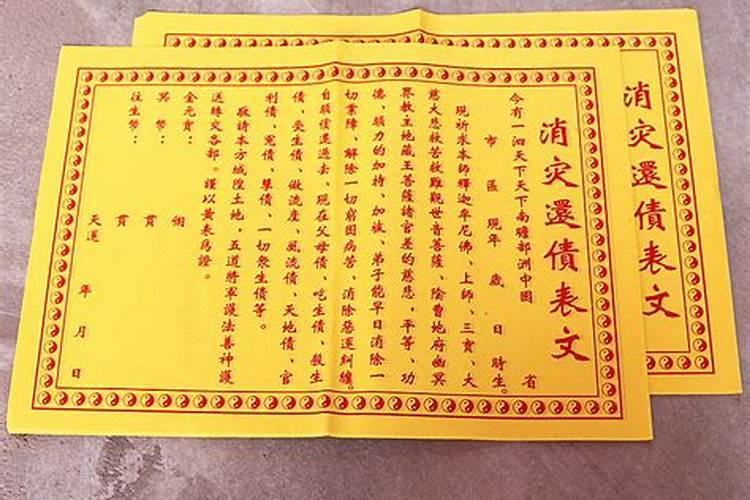 消灾還債表文
消灾還債表文
今有一泗天下天下南瞻部洲中國 省
市 區 現年 歲 日 時生。
現祈求本師釋迦牟尼佛、上師、三寶、大
慈大悲救苦救難觀世音菩薩、陰曹地府幽冥
界教主地藏王菩薩諸官差的慈悲,平等、功
德、願力的加持、加被、弟子能早日消除一
切業障、解除一切窮困病苦、消除惡運糾纏。
自願償還過去、現在父母債、吃生債、殺生
債、受生債、做流産、風流債、天地債、官
利債、冤債、孽債、一切衆生債等。
敬請本方城隍土地,五道將軍護法善神護
送轉交各部。謹以黄表爲證。
金元寶: 個
冥幣: 貫
往生幣: 貫
天運 年 月 日